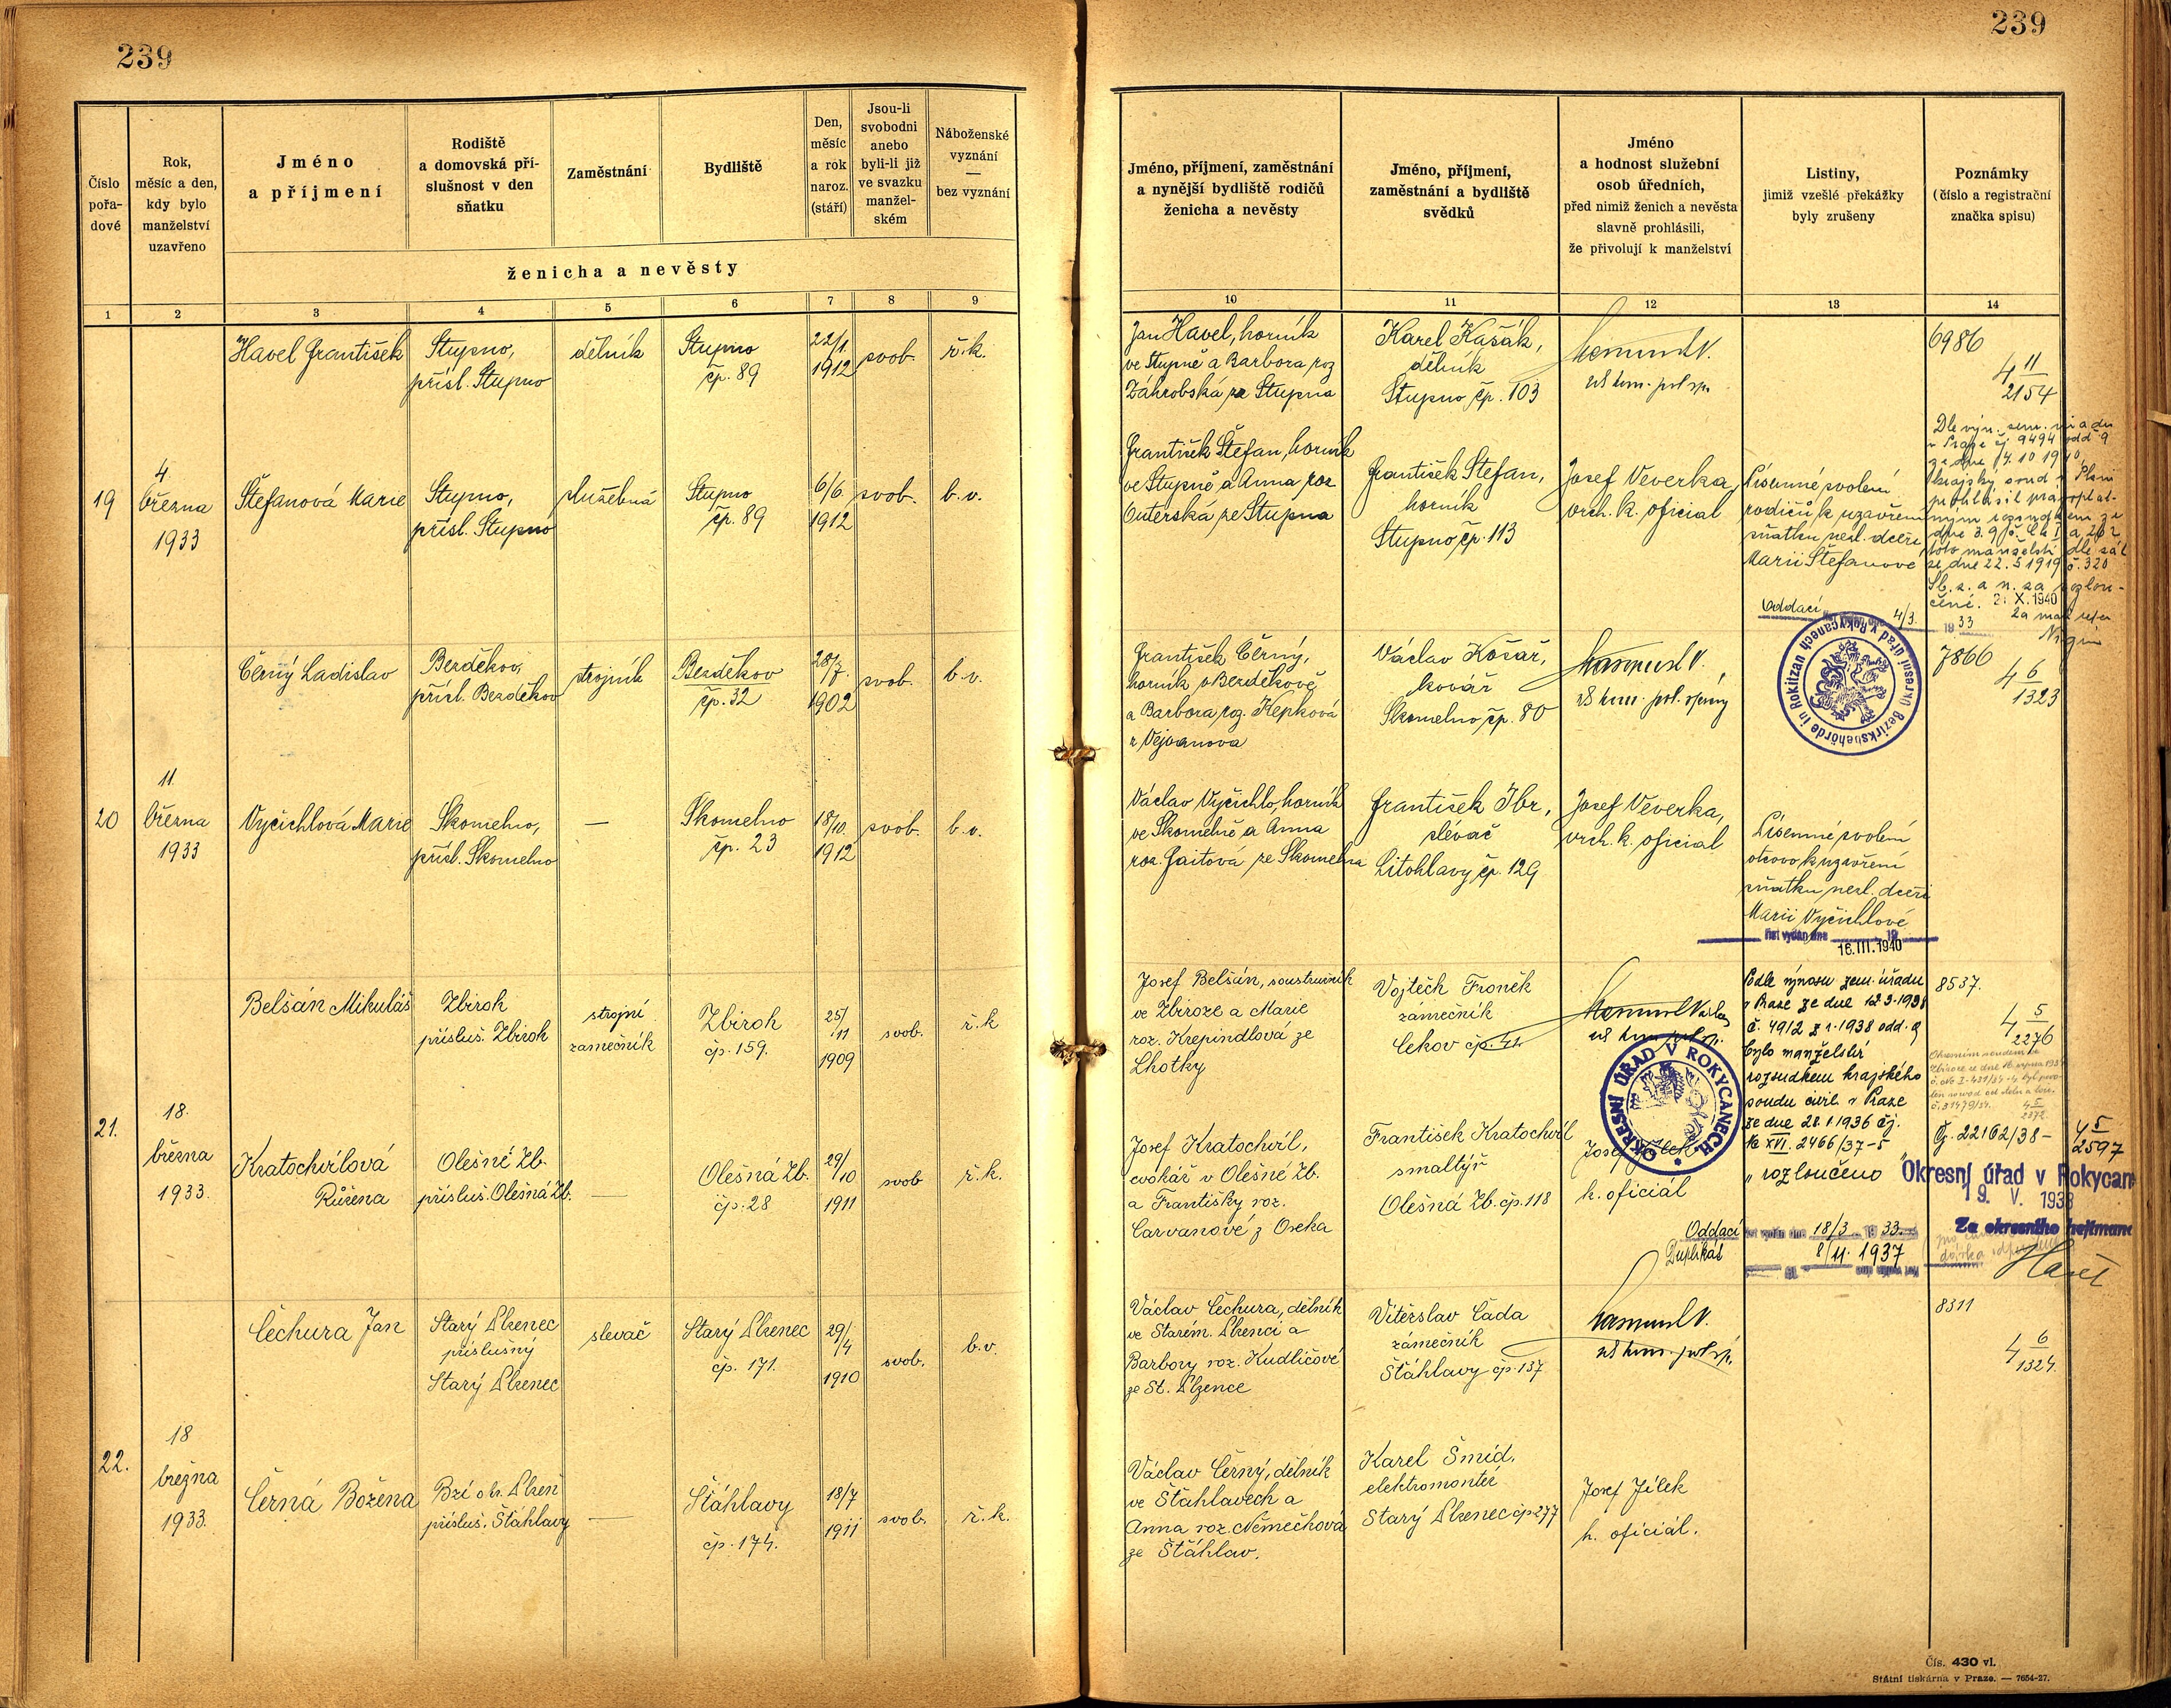 239
239
Číslo
pořa-
dové
Rok,
měsíc a den,
kdy bylo
manželství
uzavřeno
Jméno
a příjmení
Rodiště
a domovská pří-
slušnost v den
sňatku
Zaměstnání
Bydliště
Den,
měsíc
a rok
naroz.
(stáří)
Jsou-li
svobodni
anebo
byli-li již
ve svazku
manžel-
ském
Náboženské
vyznání
—
bez vyznání
ženicha a nevěsty
Jméno, příjmení, zaměstnání
a nynější bydliště rodičů
ženicha a nevěsty
Jméno, příjmení,
zaměstnání a bydliště
svědků
Jméno
a hodnost služební
osob úředních,
před nimiž ženich a nevěsta
slavně prohlásili,
že přivolují k manželství
Listiny,
jimiž vzešlé překážky
byly zrušeny
Poznámky
(číslo a registrační
značka spisu)
1 2 3 4 5 6 7 8 9
10 11 12 13 14
Havel František
Stupno,
přísl. Stupno
dělník
Stupno
čp. 89
22/1.
1912
svob.
ř.k.
Jan Havel, horník
ve Stupně a Barbora roz
Záhrobská ze Stupna
Karel Kašák,
dělník
Stupno čp. 103
6986
4 11
2154
19
4.
března
1933
Štefanová Marie
Stupno,
přísl. Stupno
služebná
Stupno
čp. 89
6/6.
1912
svob.
b.v.
František Štefan, horník
ve Stupně a Anna roz
Outerská ze Stupna
František Štefan,
horník
Stupno čp. 113
Josef Veverka,
vrch. k. oficial
Písemné svolení
rodičů k uzavření
sňatku nezl. dceře
Marii Štefanové
Dle výn. zem. úřadu
v Praze čj. 9494 odd 9
ze dne 14.10 1940
krajský soud v Plzni
prohlásil pravoplat-
ným rozsudkem ze
toto manželství dle zák
ze dne 22.5 1919 č. 320
Sb. z. a n. za rozlou-
čené. 2. X. 1940
Oddací 4/3. 1933
Bezirksbehörde in Rokitzan
Okresní úřad v Rokycanech
Černý Ladislav
Bezděkov,
přísl. Bezděkov
strojník
Bezděkov
čp. 32
28/7.
1902
svob.
b.v.
František Černý,
horník v Bezděkově
a Barbora roz. Kepková
z Vejvanova
Václav Košař,
kovář
Skomelno čp. 80
7866
4 6
1323
20
11.
března
1933
Vyčichlová Marie
Skomelno,
přísl. Skomelno
—
Skomelno
čp. 23
18/10.
1912
svob.
b.v.
Václav Vyčichlo, horník
ve Skomelně a Anna
roz. Gaitová ze Skomelna
František Ibr,
slévač
Litohlavy čp. 129
Josef Veverka,
vrch. k. oficial
Písemné svolení
otcovo k uzavření
sňatku nezl. dceři
Marii Vyčichlové
list vydán dne
16.III.1940
Belšán Mikuláš
Zbiroh
přísluš. Zbiroh
strojní
zámečník
Zbiroh
čp. 159.
25/11
1909
svob.
ř.k
Josef Belšán, soustružník
ve Zbiroze a Marie
roz. Krepindlová ze
Lhotky
Vojtěch Froněk
zámečník
Cekov čp. 41.
OKRESNÍ ÚŘAD V ROKYCANECH
Podle výnosu zem. úřadu
v Praze ze dne 12.3.1938
č. 49/2 z r. 1938 odd. 9
bylo manželství
rozsudkem krajského
soudu civil. v Praze
ze dne 28.1.1936 čj.
Ck XVI. 2466/37-5
„rozloučeno“
8537.
4 5
2276
Čj. 22162/38- 4 5
2597
Okresní úřad v Rokycan
19. V. 1938
Za okresního hejtmana
21.
18.
března
1933.
Kratochvílová
Růžena
Olešné Zb.
přísluš. Olešná Zb.
—
Olešná Zb.
čp. 28
29/10
1911
svob
ř.k.
Josef Kratochvíl,
cvokář v Olešné Zb.
a Františky roz.
Carvanové z Oseka
František Kratochvíl
smaltýř
Olešná Zb. čp. 118
Josef Jílek
k. oficiál
Oddací list vydán dne 18/3 1933.
Duplikát 8/11. 1937
Čechura Jan
Starý Plzenec
příslušný
Starý Plzenec
slevač
Starý Plzenec
čp. 171.
29/4
1910
svob.
b.v.
Václav Čechura, dělník
ve Starém. Plzenci a
Barbory roz. Kudličové
ze St. Plzence
Vítězslav Čada
zámečník
Štáhlavy čp. 137
8311
4 6
1324.
22.
18
března
1933.
Černá Božena
Bzí okr. Plzeň
přísluš. Štáhlavy
—
Štáhlavy
čp. 174.
18/7
1911
svob.
ř.k.
Václav Černý, dělník
ve Štáhlavech a
Anna roz. Němečková
ze Štáhlav.
Karel Šmíd,
elektromontér
Starý Plzenec čp 277
Josef Jílek
k. oficiál.
Čís. 430 vl.
Státní tiskárna v Praze. — 7654-27.